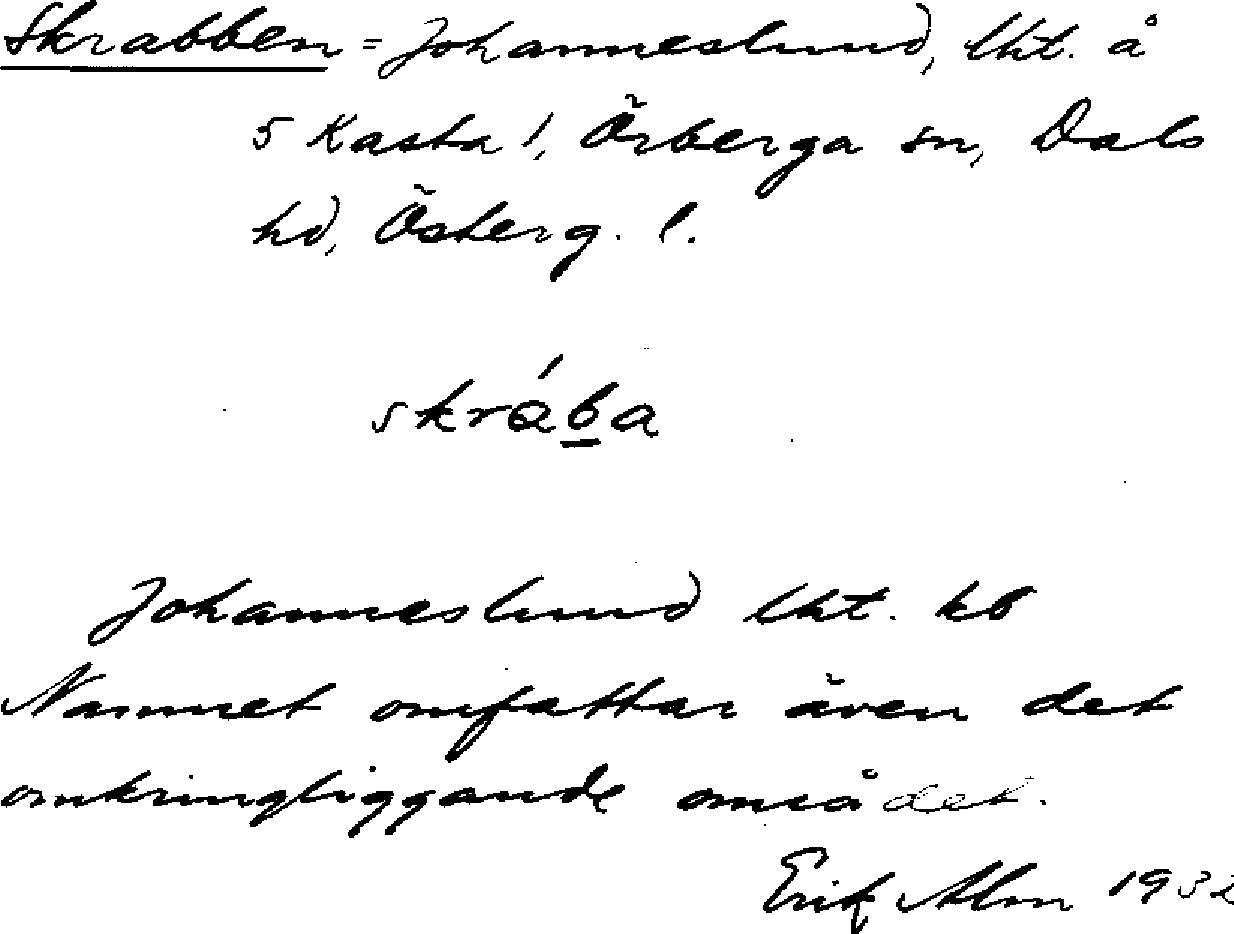 Skrabben = Johanneslund, lht. å
5 Kasta 1, Örberga sn, Dals
hd, Österg. l.
skráb̲a
Johanneslund lht. kb
Namnet omfattar även det
omkringliggande området.
Erik Alm 1932